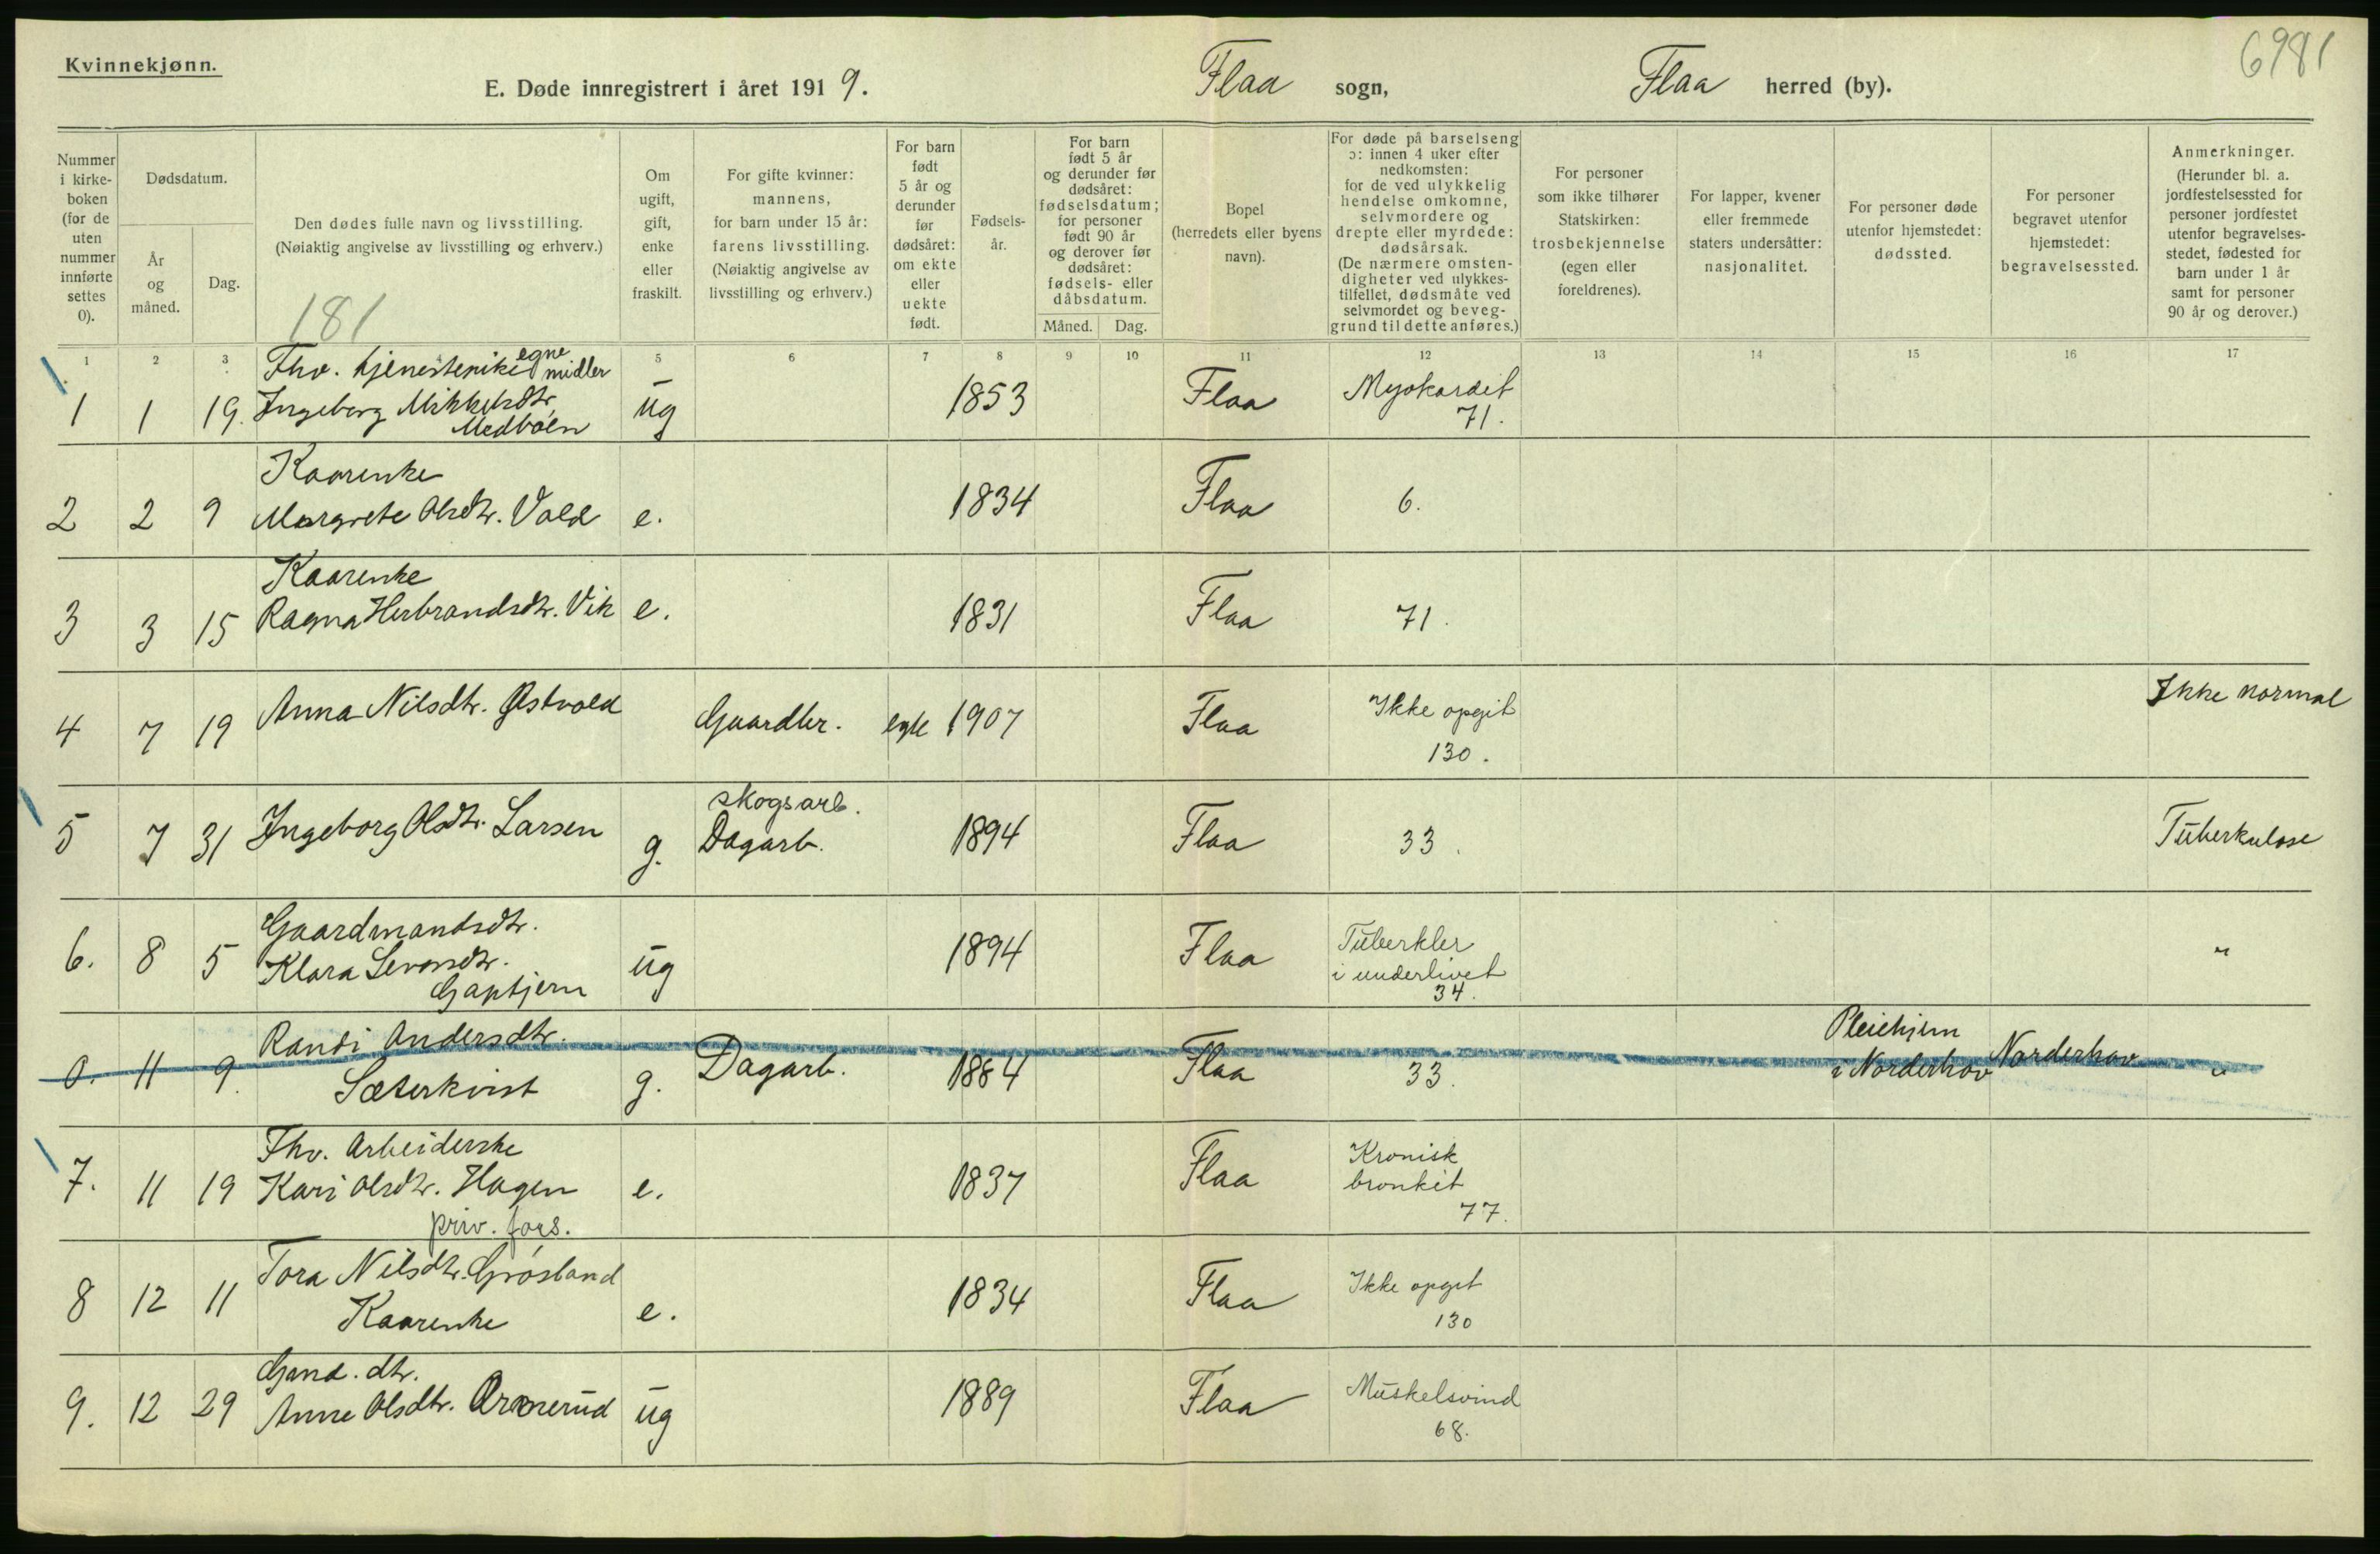 Kvinnekjønn.
6981
E. Døde innregistrert i året 1919. Flaa sogn, Flaa herred (by).
Nummer i kirke-boken (for de uten nummer innførte settes 0).
Dødsdatum.
År og måned.
Dag.
Den dødes fulle navn og livsstilling.
(Nøiaktig angivelse av livsstilling og erhverv.)
181
Om ugift, gift, enke eller fraskilt.
For gifte kvinner: mannens, for barn under 15 år: farens livsstilling. (Nøiaktig angivelse av livsstilling og erhverv.)
For barn født 5 år og derunder før dødsåret: om ekte eller uekte født.
Fødsels-år.
For barn født 5 år og derunder før dødsåret: fødselsdatum; for personer født 90 år og derover før dødsåret: fødsels- eller dåbsdatum.
Måned. Dag.
Bopel (herredets eller byens navn).
For døde på barselseng ɔ: innen 4 uker efter nedkomsten: for de ved ulykkelig hendelse omkomne, selvmordere og drepte eller myrdede: dødsårsak. (De nærmere omsten-digheter ved ulykkes-tilfellet, dødsmåte ved selvmordet og beveg-grund til dette anføres.)
For personer som ikke tilhører Statskirken: trosbekjennelse (egen eller foreldrenes).
For lapper, kvener eller fremmede staters undersåtter: nasjonalitet.
For personer døde utenfor hjemstedet: dødssted.
For personer begravet utenfor hjemstedet: begravelsessted.
Anmerkninger. (Herunder bl. a. jordfestelsessted for personer jordfestet utenfor begravelses-stedet, fødested for barn under 1 år samt for personer 90 år og derover.)
1 2 3 5 6 7 8 9 10 11 12 13 14 15 16 17
Fhv. tjenestepike egne midler
1 1 19. Ingeborg Mikkelsdtr. Medboen ug 1853 Flaa Myokardit 71.
Kaarenke
2 2 9 Margrete Olsdtr. Vold e. 1834 Flaa 6.
Kaarenke
3 3 15 Ragna Herbrandsdtr. Vik e. 1831 Flaa 71.
4 7 19 Anna Nilsdtr. Østvold Gaardbr. egte 1907 Flaa Ikke opgit 130. Ikke normal
skogsarb.
5 7 31 Ingeborg Olsdtr. Larsen g. Dagarb. 1894 Flaa 33. Tuberkulose
Gaardmandsdtr.
6. 8 5 Klara Sevensdtr. ug 1894 Flaa Tuberkler i underlivet 34. "
Randi Andersdtr. Pleiehjem
0. 11 9. Sæterkvist g. Dagarb. 1884 Flaa 33. i Norderhov Norderhov "
Fhv. Arbeiderske
7. 11 19 Kari Olsdtr. Hagen e. 1837 Flaa Kronisk bronkit 77.
priv. fors.
8 12 11 Tora Nilsdtr. Grøsland e. 1834 Flaa Ikke opgit 130
Kaarenke
Gmd. dtr.
9. 12 29 Anne Olsdtr. ug 1889 Flaa Muskelsvind 68.